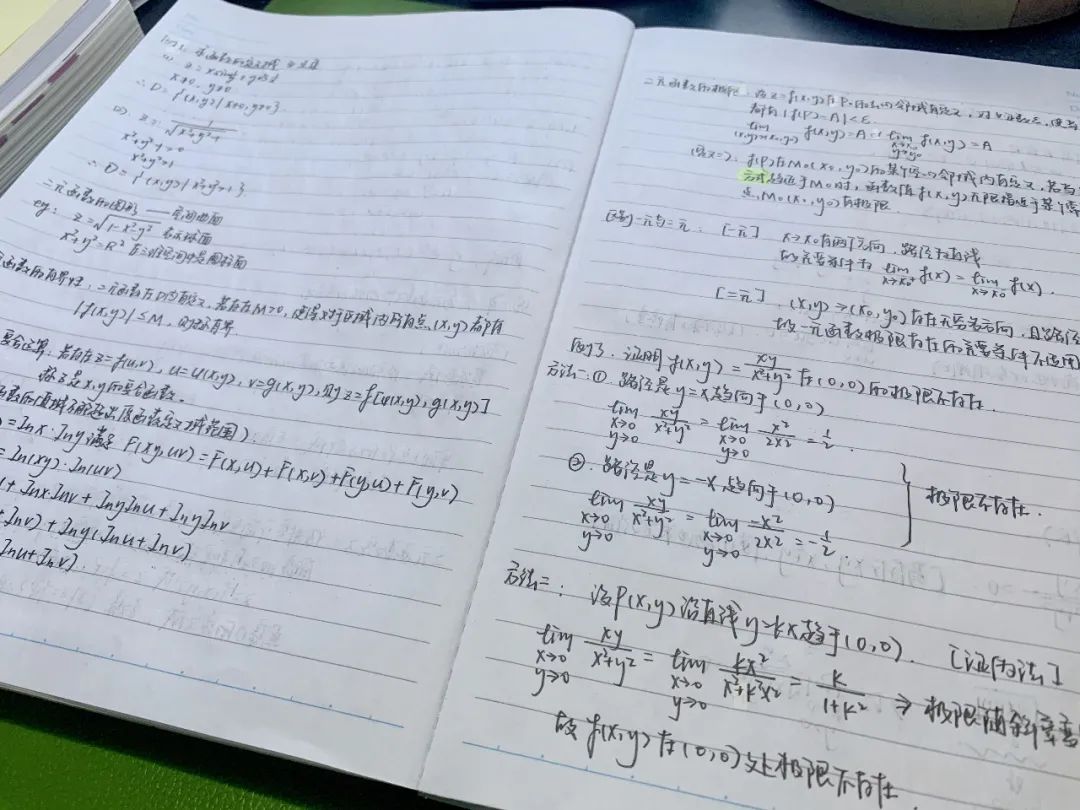 例1. 求函数的定义域
∴ D={(x,y)|x≠0, y>0}.
x²+y²-1
x²+y²≠1
二元函数的图形 —— 空间曲面
eg: z=√1-x²-y² 表示球面
x²+y²=R² 在三维空间中是圆柱面
函数的有界性, 二元函数在D内有定义, 若存在M>0, 使得对于区域内所有点(x,y)都有
|f(x,y)|≤M, 则称有界
复合运算: 若存在z=f(u,v), u=u(x,y), v=g(x,y), 则z=f[φ(x,y), g(x,y)]
称z是x,y的复合函数.
)=lnx·lny 满足 F(xy,uv)=F(x,u)+F(x,v)+F(y,u)+F(y,v)
=ln(xy)·ln(uv)
+lnxlnv+lnylnu+lnylnv
+lnv)+lny(lnu+lnv)
lnu+lnv)
二元函数的极限. 设z=f(x,y)在P₀的去心邻域有定义, 对∀正数ε,
都有|f(P)-A|<ε
lim (x,y)→(x₀,y₀) f(x,y)=A lim x→x₀ y→y₀ f(x,y)=A
(定义二). f(P)在M₀(x₀,y₀)的某个空心邻域内有定义,
方式趋近于M₀时, 函数值f(x,y)无限接近于某个常
M₀(x₀,y₀)有极限
区别一元与二元: [一元] x→x₀有两个方向, 路径为直线
故充要条件为 lim x→x₀⁺ f(x)=lim x→x₀⁻ f(x).
[二元]. (x,y)→(x₀,y₀)存在无穷多方向, 且路径
故一元函数极限存在的充要条件不适用
例3. 证明f(x,y)=xy/x²+y²在(0,0)的极限不存在.
方法一:① 路径是y=x趋向于(0,0)
lim x→0 y→0 xy/x²+y² = lim x→0 y→0 x²/2x² = 1/2.
②. 路径是y=-x趋向于(0,0)
lim x→0 y→0 xy/x²+y² = lim x→0 y→0 -x²/2x² = -1/2.
极限不存在.
方法二: 设P(x,y)沿直线y=kx趋于(0,0). [证伪法]
lim x→0 y→0 xy/x²+y² = lim x→0 y→0 kx²/x²+k²x² = k/1+k² ⇒ 极限随斜率变
故f(x,y)在(0,0)处极限不存在